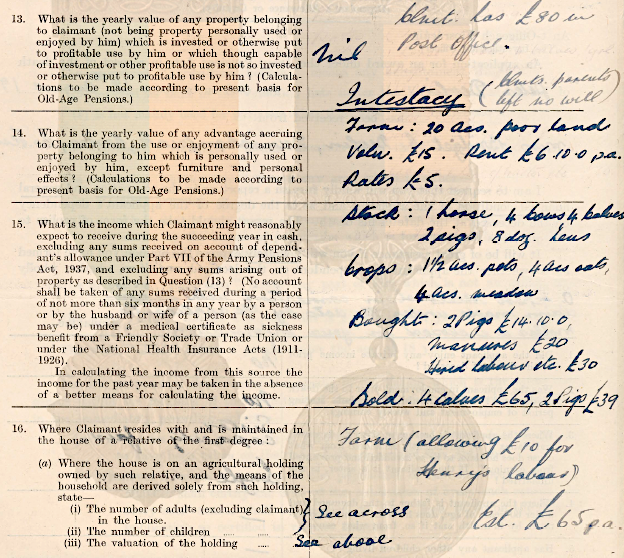 13. What is the yearly value of any property belonging
to claimant (not being property personally used or
enjoyed by him) which is invested or otherwise put
to profitable use by him or which though capable
of investment or other profitable use is not so invested
or otherwise put to profitable use by him? (Calcula-
tions to be made according to present basis for
Old-Age Pensions.)
Clmt. has £80 in
Post Office.
Nil
Intestacy (Clmts. parents
left no will)
14. What is the yearly value of any advantage accruing
to Claimant from the use or enjoyment of any pro-
perty belonging to him which is personally used or
enjoyed by him, except furniture and personal
effects? (Calculations to be made according to
present basis for Old-Age Pensions.)
Farm: 20 acs. poor land
Valn. £15. Rent £6.10.0 p.a.
Rates £5.
15. What is the income which Claimant might reasonably
expect to receive during the succeeding year in cash
excluding any sums received on account of depend-
ant's allowance under Part VII of the Army Pensions
Act, 1937, and excluding any sums arising out of
property as described in Question (13)? (No account
shall be taken of any sums received during a period
of not more than six months in any year by a person
or by the husband or wife of a person (as the case
may be) under a medical certificate as sickness
benefit from a Friendly Society or Trade Union or
under the National Health Insurance Acts (1911-
1926).
In calculating the income from this source the
income for the past year may be taken in the absence
of a better means for calculating the income.
Stock: 1 horse, 4 cows 4 calves
2 pigs, 8 doz. hens
Crops: 1½ acs. pots, 4 acs oats,
4 acs. meadow
Bought: 2 Pigs £14.10.0,
manures £20
Hired labour etc. £30
Sold: 4 calves £65, 2 Pigs £39
16. Where Claimant resides with and is maintained in
the house of a relative of the first degree:
(a) Where the house is on an agricultural holding
owned by such relative, and the means of the
household are derived solely from such holding,
state—
(i) The number of adults (excluding claimant)
in the house.
(ii) The number of children
(iii) The valuation of the holding
See across
See above
Farm (allowing £10 for
Henry's labour)
Est. £65 p.a.